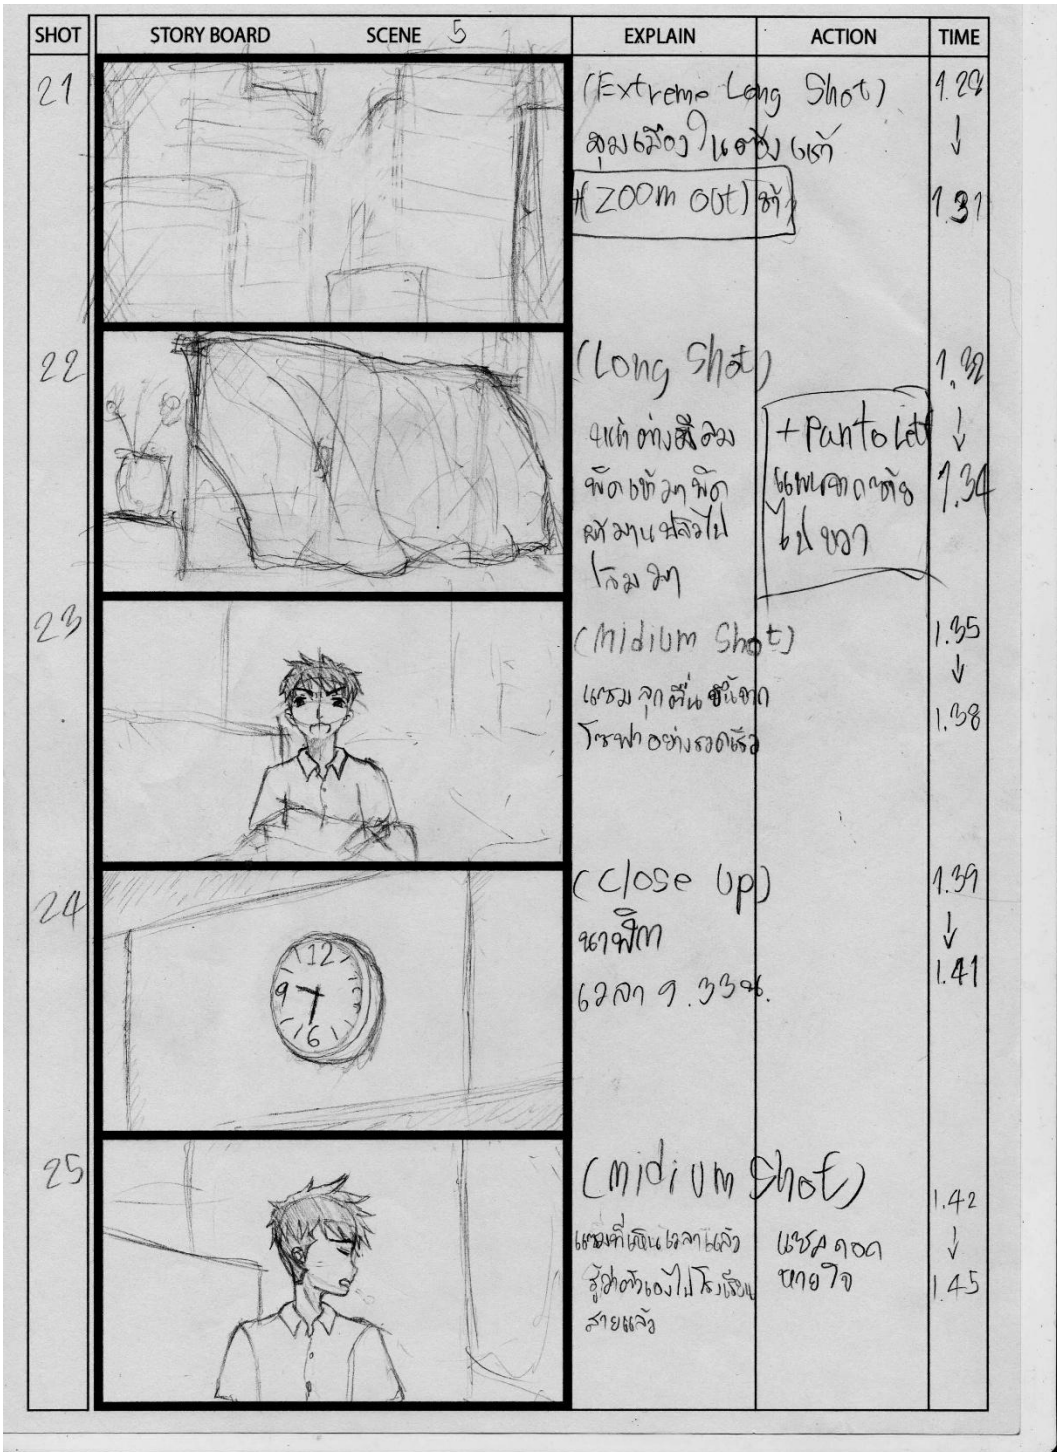 SHOT STORY BOARD SCENE 5 EXPLAIN ACTION TIME
21
(Extreme Long Shot)
มุมเมืองในช่วงเช้า
+(ZOOM OUT) ช้า
1.28
↓
1.31
22
(Long Shot)
หน้าต่างมีลม
พัดเข้ามาพัด
ผ้าม่านปลิวไป
+ Pan to Left
แพนจากซ้าย
ไปขวา
1.32
↓
1.34
23
(Midium Shot)
แซมลุกตื่นขึ้นจาก
โซฟาอย่างรวดเร็ว
1.35
↓
1.38
24
(Close Up)
นาฬิกา
เวลา 9.33น.
12
9
6
1.39
↓
1.41
25
(Midium Shot)
แซมที่เห็นเวลาแล้ว
รู้ว่าตัวเองไปโรงเรียน
สายแล้ว
แซมถอด
หายใจ
1.42
↓
1.45